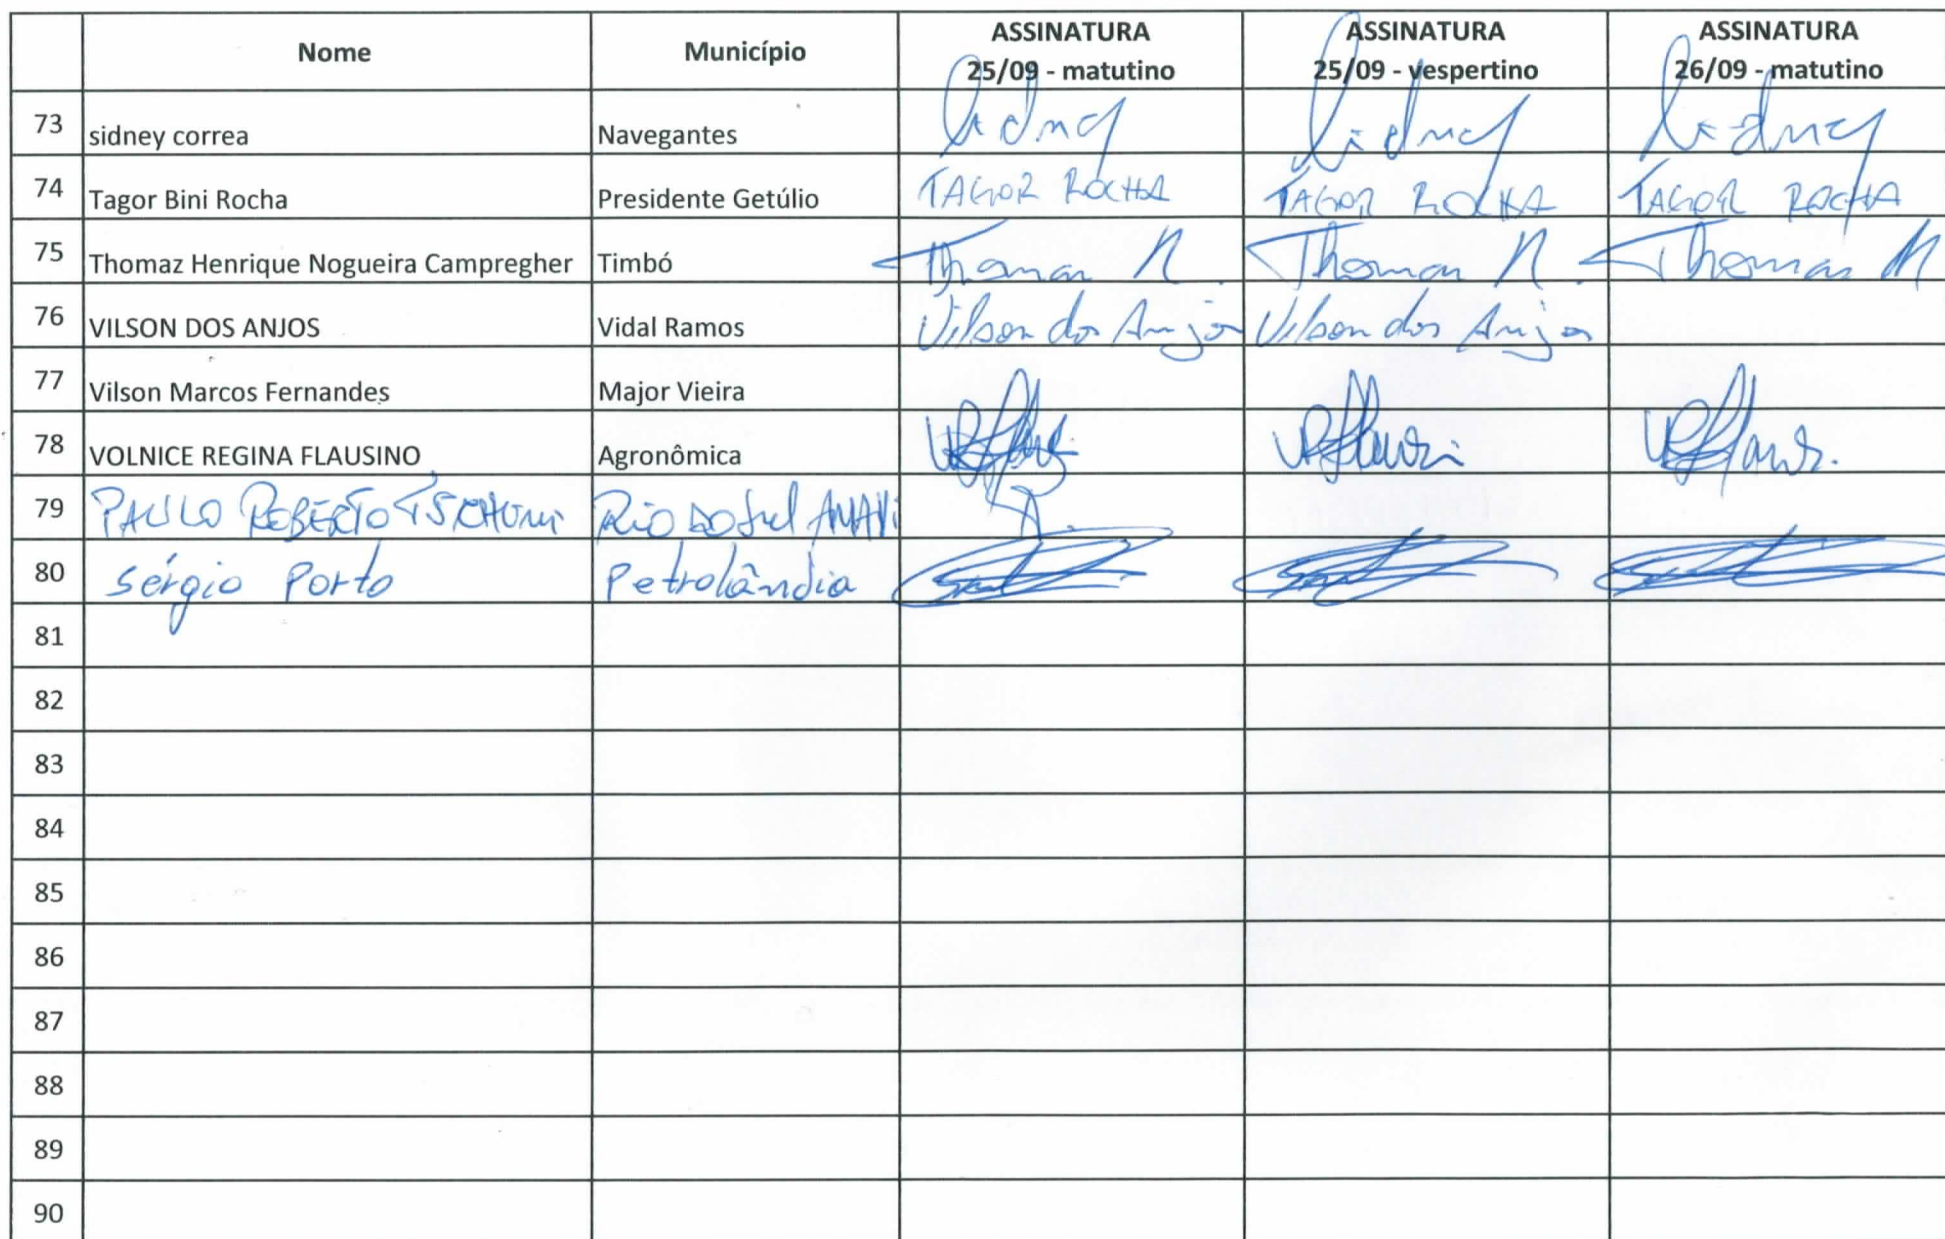 Nome Município ASSINATURA 25/09 - matutino ASSINATURA 25/09 - vespertino ASSINATURA 26/09 - matutino
73 sidney correa Navegantes Sidney Sidney Sidney
74 Tagor Bini Rocha Presidente Getúlio TAGOR ROCHA TAGOR ROCHA TAGOR ROCHA
75 Thomaz Henrique Nogueira Campregher Timbó Thomaz N. Thomaz N. Thomaz N
76 VILSON DOS ANJOS Vidal Ramos Vilson dos Anjos Vilson dos Anjos
77 Vilson Marcos Fernandes Major Vieira
78 VOLNICE REGINA FLAUSINO Agronômica
79 PAULO ROBERTO TSCHUMI RIO DO Sul AMAVI
80 Sérgio Porto Petrolândia
81
82
83
84
85
86
87
88
89
90